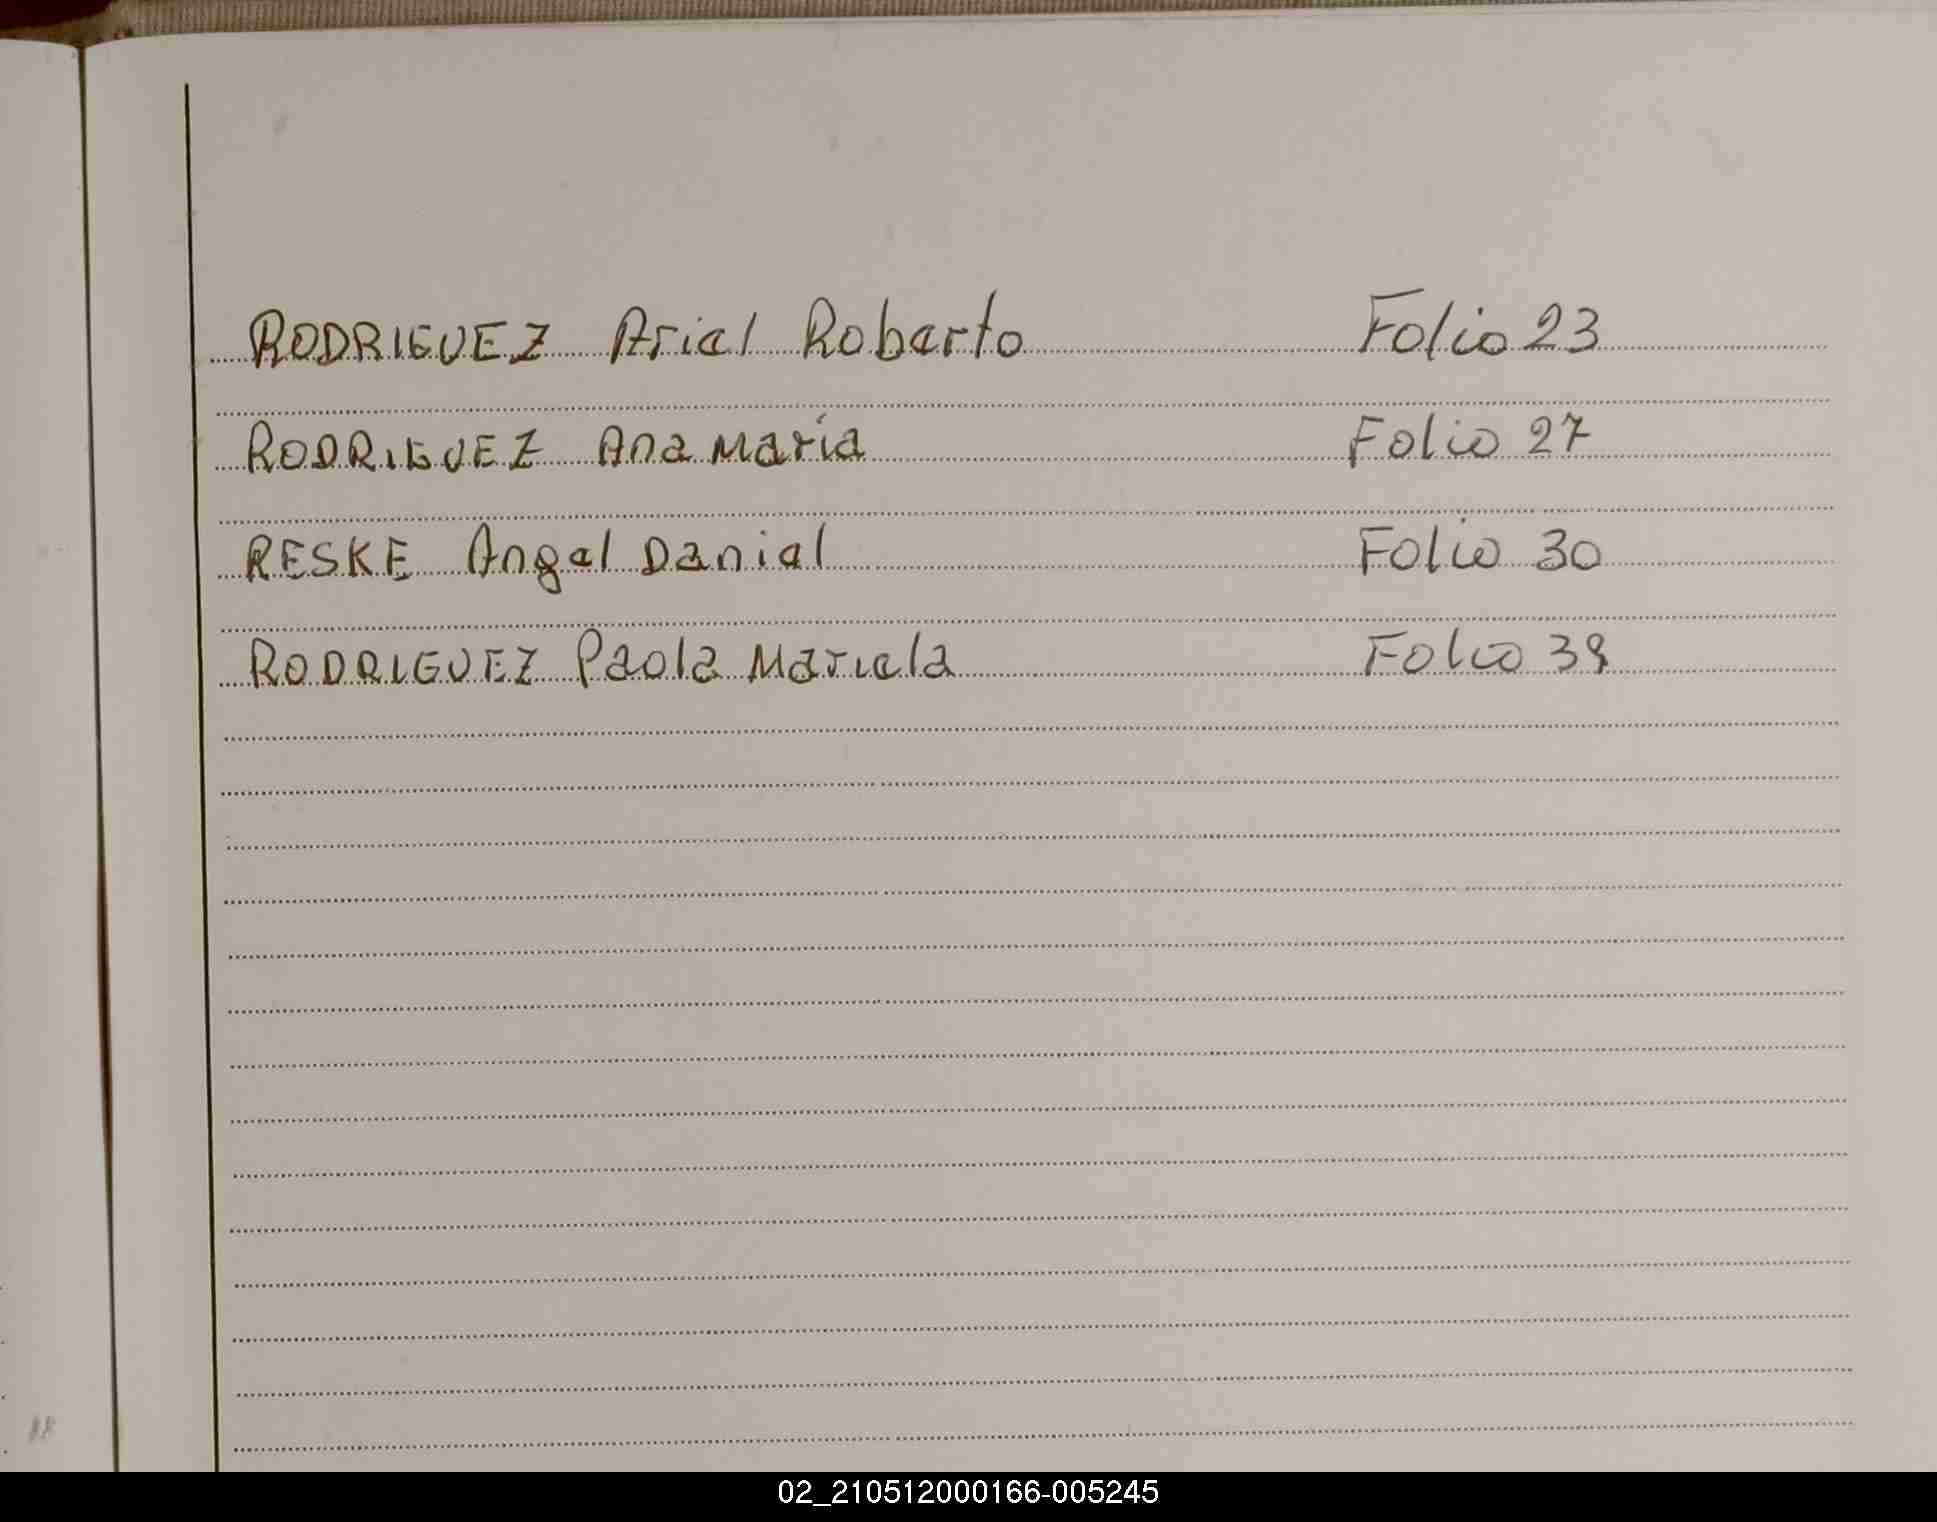 RODRIGUEZ Ariel Roberto Folio 23
RODRIGUEZ Ana María Folio 27
RESKE Angel Daniel Folio 30
RODRIGUEZ Paola Mariela Folio 39
02_210512000166-005245